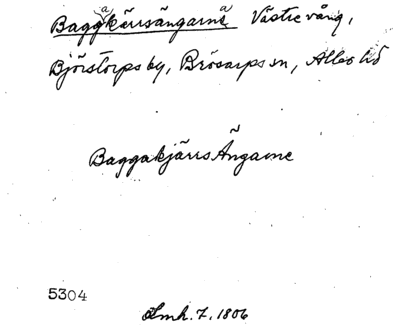 Baggakärrsängarna Västrevång,
Björstorps by, Brösarps sn, Albo hd
Baggakjärrs Ängarne
5304
Lmh. 7. 1806